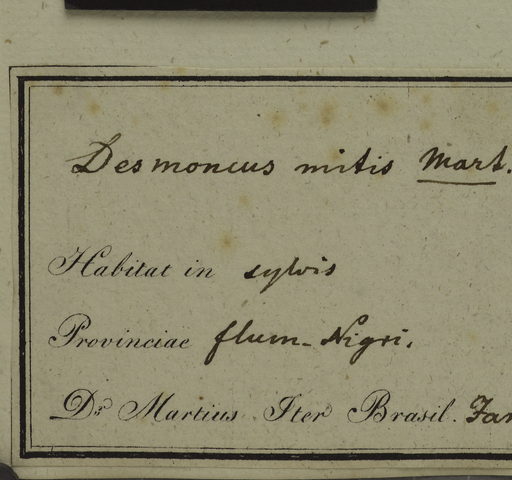 Desmoncus mitis Mart.
Habitat in sylvis
Provinciae flum. Nigri.
Dr. Martius Iter Brasil.